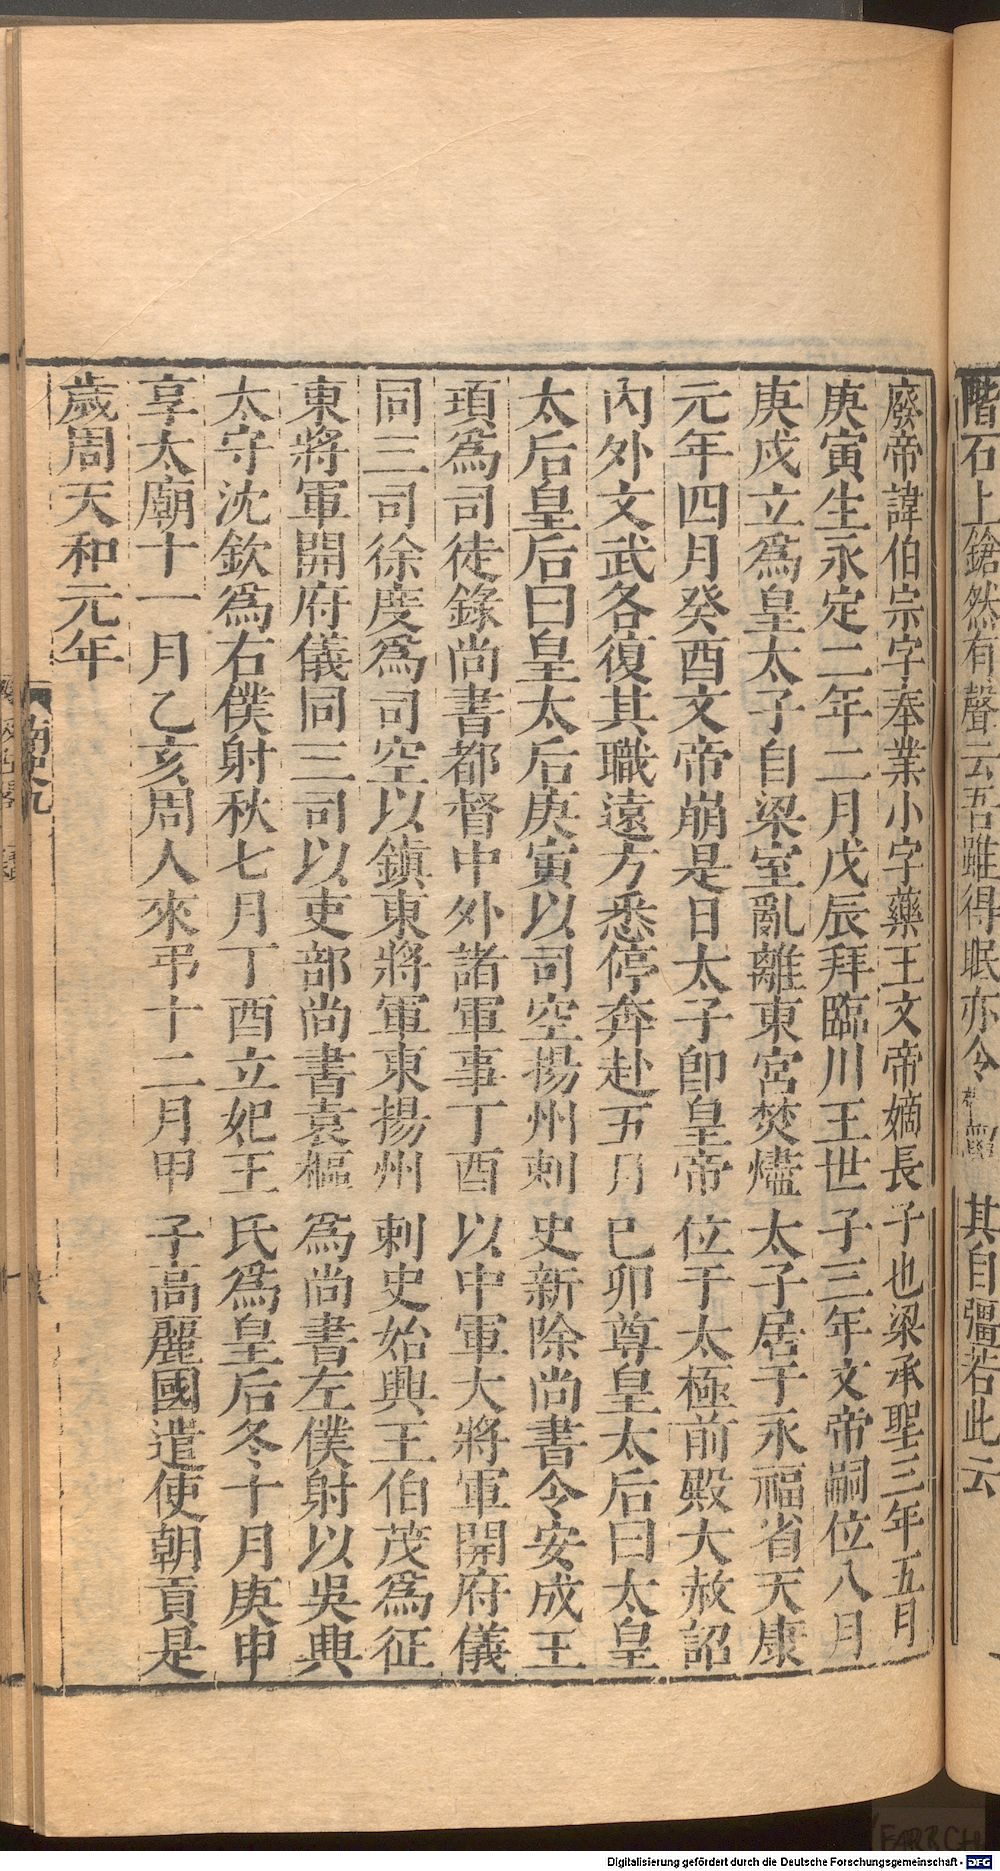 階石上鎗然有聲云吾雖得眠亦令 其自彊若此云
廢帝諱伯宗字奉業小字藥王文帝嫡長子也梁承聖三年五月
庚寅生永定二年二月戊辰拜臨川王世子三年文帝嗣位八月
庚戌立爲皇太子自梁室亂離東宮焚燼太子居于永福省天康
元年四月癸酉文帝崩是日太子卽皇帝位于太極前殿大赦詔
內外文武各復其職遠方悉停奔赴五月巳卯尊皇太后曰太皇
太后皇后曰皇太后庚寅以司空揚州刺史新除尚書令安成王
頊爲司徒錄尚書都督中外諸軍事丁酉以中軍大將軍開府儀
同三司徐度爲司空以鎮東將軍東揚州刺史始興王伯茂爲征
東將軍開府儀同三司以吏部尚書袁樞爲尚書左僕射以吳興
太守沈欽爲右僕射秋七月丁酉立妃王氏爲皇后冬十月庚申
享太廟十一月乙亥周人來弔十二月甲子高麗國遣使朝貢是
歲周天和元年
南史九
Digitalisierung gefördert durch die Deutsche Forschungsgemeinschaft - DFG